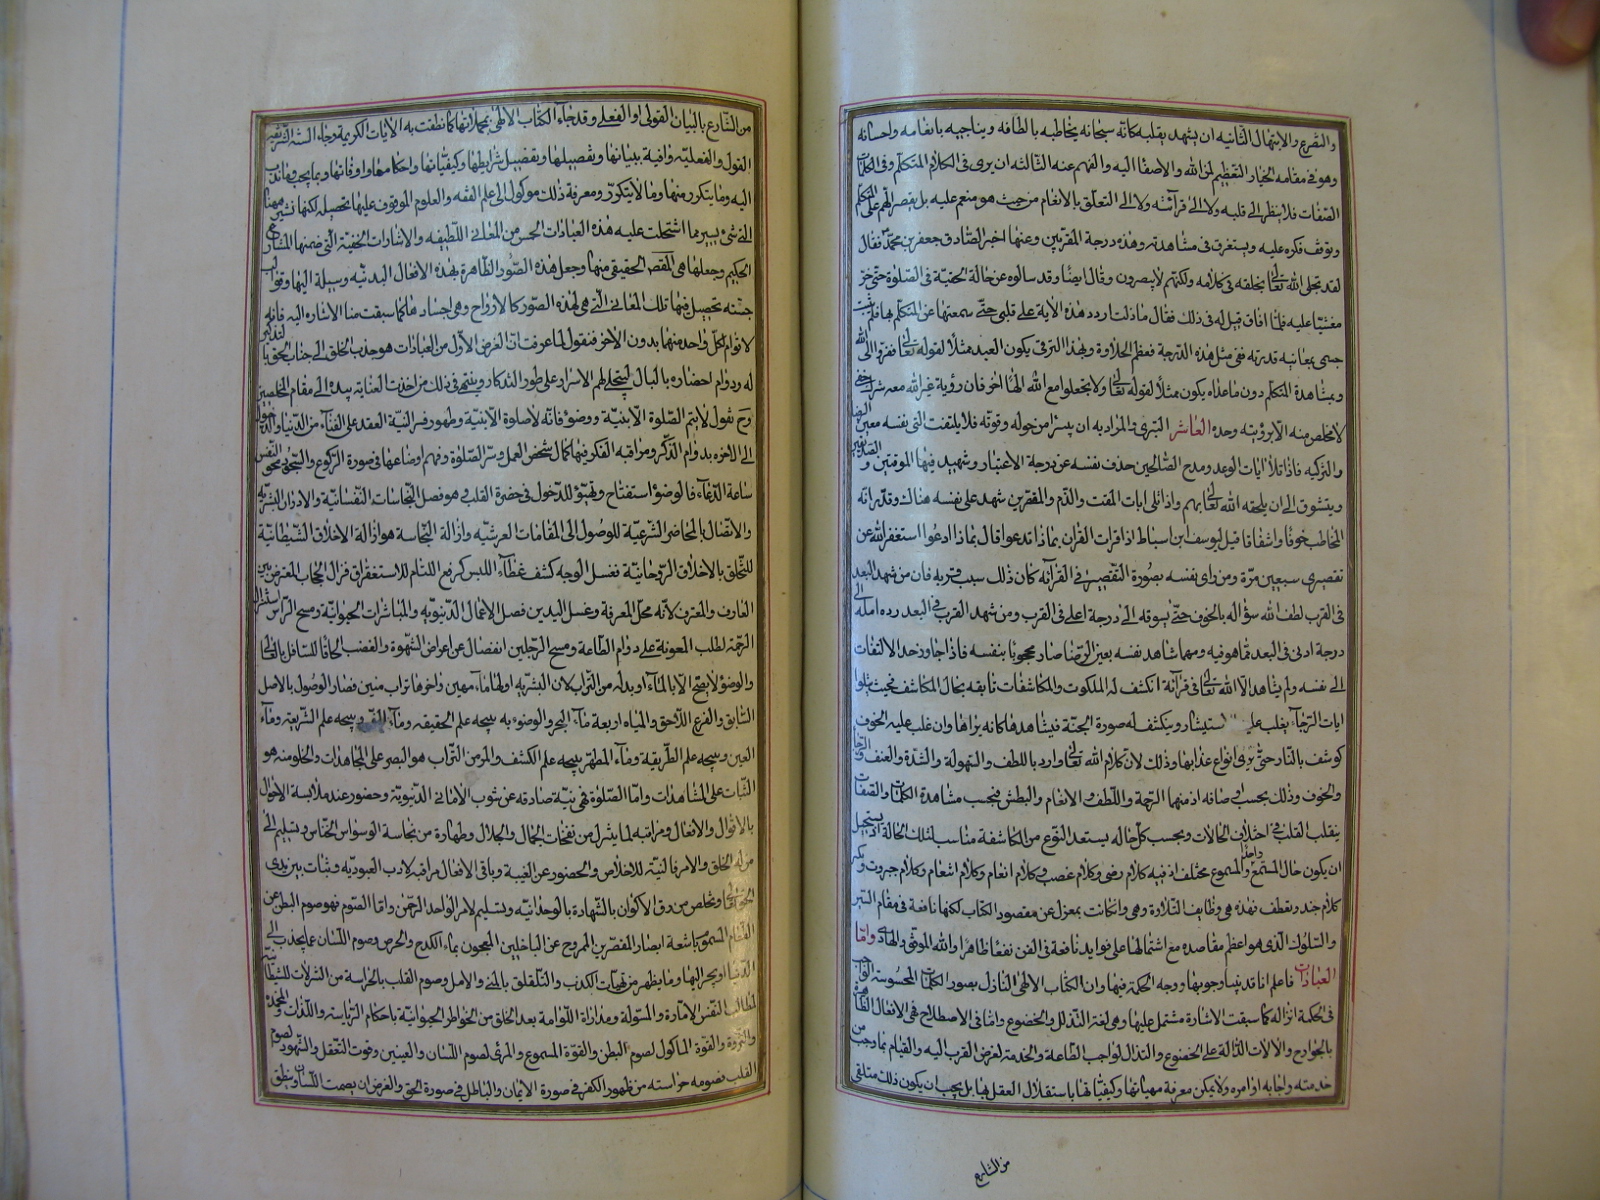 والتضرع والابتهال الثانيه ان يشهد بقلبه كانه سبحانه يخاطبه بالطافه ويناجيه بانعامه واحسانه
وهو فى مقامه الحياء والتعظيم لمن الله والاصغاء اليه والفهم عنه الثالثه ان يرى فى الكلام المتكلم وفى الكلمات
الصفات فلا ينظر الى قلبه ولا الى قرآئته ولا الى التعلق بالانعام من حيث هو منعم عليه بل يقصر الهم على المتكلم
ويوقف فكره عليه ويستغرق فى مشاهدته وهذه درجة المقربين وعنها اخبر الصادق جعفر بن محمد فقال
لقد تجلى الله تعالى بخلقه فى كلامه ولكنهم لا يبصرون وقال ايضا وقد سالوه عن حالة لحقته فى الصلوة حتى خر
مغشيا عليه فلما افاق قيل له فى ذلك فقال ما ذلت اردد هذه الاية على قلبى حتى سمعتها عن المتكلم بها فلم يثبت
جسمى بمعاينه قدرته ففى مثل هذه الدرجة فعظم الحلاوة وبهذا الترقى يكون العبد ممثلا لقوله تعالى ففروا الى الله
وبمشاهدة المتكلم دون ما عداه يكون ممثلا لقوله تعالى ولا تجعلوا مع الله الها اخر فان رؤية غير الله معه شرك خفى
لا مخلص منه الا برؤيته وحده العاشر التبرى والمراد به ان يتبرا من حوله وقوته فلا يلتفت الى نفسه بعين الرضا
والتزكيه فاذا تلا ايات الوعد ومدح الصالحين حذف نفسه عن درجة الاعتبار وشهد فيها الموقنين والصديقين
ويتشوق الى ان يلحقه الله تعالى بهم واذا تلى ايات المقت والذم والمقصرين شهد على نفسه هناك وقدر انه
المخاطب خوفا واشفاقا قيل ليوسف ابن اسباط اذا قرات القران بماذا تدعوا قال بماذا ادعوا استغفر الله عن
تقصيرى سبعين مرة ومن راى نفسه بصورة التقصير فى القرآئة كان ذلك سبب قربه فان من شهد البعد
فى القرب لطف الله سؤاله بالخوف حتى يسوقه الى درجة اعلى فى القرب ومن شهد القرب فى البعد رده امله الى
درجة ادنى فى البعد مما هو فيه ومهما شاهد نفسه بعين الرضا صار محجوبا بنفسه فاذا جاوز حد الالتفات
الى نفسه ولم يشاهد الا الله تعالى فى قرآئة انكشف له الملكوت والمكاشفات تابعه بحال المكاشف فحيث يتلوا
ايات الرجآء يغلب علي استبشار وينكشف له صورة الجنة فيشاهدها كانه يراها وان غلب عليه الخوف
كوشف بالنار حتى يرى انواع عذابها وذلك لان كلام الله تعالى وارد باللطف والسهولة والشدة والعنف والرجا
والخوف وذلك بحسب اوصافه اذ منها الرحمة واللطف والانعام والبطش فبحسب مشاهدة الكلمات والصفات
ينقلب القلب فى اختلاف الحالات وبحسب كل حاله يستعد لنوع من المكاشفة مناسب لتلك الحالة اذ يستحيل
ان يكون حال المستمع واحدا والمسموع مختلف اذ فيه كلام رضى وكلام غضب وكلام انعام وكلام انتقام وكلام جبروت وتكبر
كلام وتعطف فهذه هى وظايف التلاوة وهى وان كانت بمعزل عن مقصود الكتاب لكنها نافعة فى مقام السير
والسلوك الذى هو اعظم مقاصده مع اشتمالها على فوايد نافعة فى الفن نفعا ظاهرا والله الموفق والهادى واما
العبادات فاعلم انا قد بينا وجوبها ووجه الحكمة فيها وان الكتاب الالهى النازل بصور الكلمات المحسوسة الواجب
فى الحكمة انزاله كما سبقت الاشارة مشتمل عليها وهى لغة التذلل والخضوع واما فى الاصطلاح فهى الافعال الظاهرة
بالجوارح والالات الدالة على الخضوع والتذلل لواجب الطاعة والخدمة لغرض القرب اليه والقيام بما وجب من
خدمته واجابه اوامره ولا يمكن معرفة مهياتها وكيفياتها باستقلال العقل فيها بل يجب ان يكون ذلك متلقى
من الشارع
من الشارع بالبيان القولى او الفعلى وقد جاء الكتاب الالهى بمجملاتها كما نطقت به الايات الكريمة وجاء السنة الشريفة
القولية والفعليه وافية ببيانها وتفصيلها وبتفصيل شرايطها وكيفياتها واحكامها واوقاتها وما يجب وما ندب
اليه وما يتكرر منها وما لا يتكرر ومعرفة ذلك موكول الى علم الفقه والعلوم الموقوف عليها تحصيله لكنها نشير مهنا
الى شىء يسير مما اشتملت عليه هذه العبادات الخمس من المعانى اللطيفه والاشارات الخفية التى ضمنها الشارع
الحكيم وجعلها هى المقصد الحقيقى منها وجعل هذه الصور الظاهرة بهذه الافعال البدنيه وسيلة اليها وقوالب
جسته تحصيل فيها تلك المعانى التى هى لهذه الصور كالارواح وهى اجسادها كما سبقت منا الاشاره اليه فانه
لا قوام لكل واحد منهما بدون الاخر فنقول لما عرفت ان الغرض الاول من العبادات هو جذب الخلق الى جناب الحق بالتذكير
له ودوام احضاره بالبال ليتجلى لهم الاسرار على طور التذكار وينتهى فى ذلك من اخذت العناية بيده الى مقام المخلصين
وح نقول لا يتم الصلوة الا بنية ووضوء فانه لا صلوة الا بنية وطهور فرالنية العقد على الفناء من الدنيا والدخول
الى الاخره بدوام الذكر ومراقبه الفكر فيها كمال شخص العمل وسر الصلوة وفهم اوضاعها فى صورة الركوع والسجود محو النفس
ساعة الدعاء فالوضوء استفتاح وتهيؤ للدخول فى حضرة القلب فهو فصل النجاسات النفسانية والادران البشريه
والاتصال بالمحاضر الشرعية للوصول الى المقامات لعرشيه وازالة النجاسة هو ازالة الاخلاق الشيطانية
للتخلق بالاخلاق الروحانية فغسل الوجه كشف غطآء اللبس كرفع اللثام للاستغفراق فزال الحجاب المعترض بين
العارف والمعترف لانه محل المعرفة وغسل اليدين فصل الاعمال الدنيويه والمباشرات الحيوانية ومسح الراس استنزال
الرحمة لطلب المعونة على دوام الطاعة ومسح الرجلين انفصال عن اعراض الشهوة والغضب لحاقا للسافل بالعالى
والوضوء لا يصح الا بالمآء او بدله من التراب لان البشريه اولها مآء مهين واخرها تراب منين فصار الوصول بالاصل
السابق والفرع اللاحق والمياه اربعة مآء البحر والوضوء به ينتجه علم الحقيقه ومآء وينتجه علم الشريعة ومآء
العين وينتجه علم الطريقة ومآء المطهر ينتجه علم الكشف والمرمن التراب هو الصبر على المجاهدات والحلومنه هو
الثبات على المشاهدات واما الصلوة فهى نية صادقه عن شوب الامانى الدنيوية وحضور عند ملابسة الاحوال
بالاقوال والافعال ومراقبه لما يتنزل من نفحات الجمال والجلال وطهارة من نجاسة الوسواس الخناس وتسليم الى
من له الخلق والامر فالنية للاخلاص والحضور عن الغيبة وباقى الافعال مراقبه لادب العبوديه وثبات بين يدى
الحق تعالى وتخلص من رق الاكوان بالشهادة بالوحدانيه وتسليم لامر الواحد الرحمن واما الصوم فهو صوم البطن عن
الطعام المسموم باشعة ابصار المقصرين الممزوج عن الباخلين المعجون بماء الكدح والحرص وصوم اللسان عما يجذب الى
الدنيا ويجر اليها وما يظهر من تمهيات الكذب والتملق بالمنى والامل وصوم القلب بالحراسة من النزلات للشيطانيه
لمطالب النفس الامارة والمسولة ومداراة اللوامة بعد الخلق من الخواطر الحيوانية باحكام الرياسته واللذات
والثروة والقوة الماكول لصوم البطن والقوة المسموع والمرئى لصوم اللسان والعينين وقوت التعقل والشهود لصوم
القلب فصومه حراسته من ظهور الكفر فى صورة الايمان والباطل فى صورة الحق والغرض ان يصمت اللسان وينطق